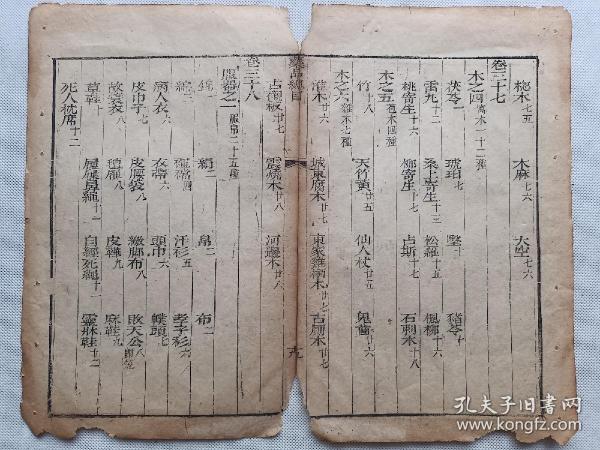 柁木七五　木麻七六　大空七六
卷三十七
木之四寓木一十二種
茯苓一　琥珀七　　豬苓十
雷丸十二　桑上寄生十三　松蘿十五　楓柳十六
桃寄生十六　柳寄生十七　占斯十七　石刺木十八
木之五苞木四種
竹十八　天竹黃廿五　仙人杖廿五　鬼齒廿六
木之六雜木七種
淮木廿六　城東腐木廿七　東家雞棲木廿七　古廁木廿七
本草綱目
十九
古櫬板廿七　震燒木廿八　河邊木廿八
卷三十八
服器之一服帛二十五種
錦一　絹二　帛二　布二
綿三　褌襠四　汗衫五　孝子衫六
病人衣六　衣帶六　頭巾六　幞頭八
皮巾子七　皮腰袋八　繳腳布八　敗天公八即笠
故蓑衣八　氈屜八　皮鞾九　麻鞋九
草鞋十　屐屜鼻繩十一　自經死繩十一　靈牀鞋十二
死人枕席十二
孔夫子旧书网
www.kongfz.com